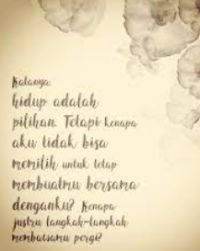 Katanya
hidup adalah
pilihan Tetapi kenapa
aku tidak bisa
memilih untuk tetap
membuatmu bersama
denganku? Kenapa
justru langkah-langkah
membawamu pergi?